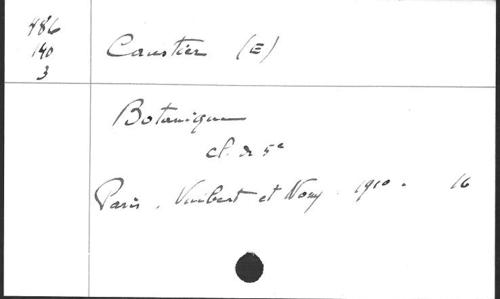 486
140
3
Caustier (E)
Botanique
cl. de 5e
Paris, Vuibert et Nony. 1910. 16